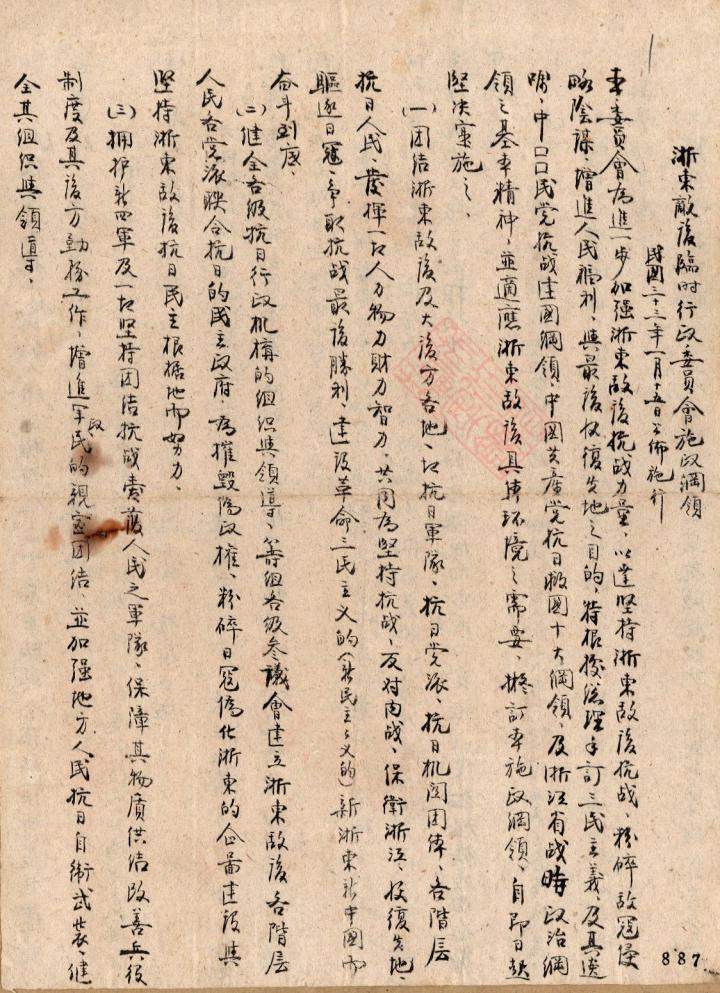 浙東敵後臨时行政委員會施政綱領
民國三十三年一月十五日公佈施行
本委員會為進一步加强浙東敌後抗战力量，以達堅持浙東敌後抗战、粉碎敌寇侵
略陰謀、增進人民福利、與最後收復失地之目的，特根據总理手訂三民主義、及其遺
嘱、中口口民党抗战建國綱領、中国共產党抗日救國十大綱領、及浙江省战時政治綱
領之基本精神，並適應浙東敌後具体环境之需要，擬訂本施政綱領，自即日起
堅决实施之、
㈠团结浙東敌後及大後方各地、一切抗日軍隊、抗日党派、抗日机関团体、各階层
抗日人民、發揮一切人力物力財力智力、共同為堅持抗战、反对内战、保衛浙江、收復失地、
驅逐日寇、争取抗战最後勝利、建設革命三民主义的（新民主主义的）新浙東新中國而
奋斗到底、
㈡健全各级抗日行政机構的组织與領導、籌组各级参議會建立浙東敌後各階层
人民各党派联合抗日的民主政府、為摧毁偽政權、粉碎日寇偽化浙東的企畵建設與
堅持浙東敌後抗日民主根据地而努力、
㈢拥护新四軍及一切堅持团结抗战爱護人民之軍隊、保障其物质供给改善兵役
制度及其後方勤務工作、增進軍政民的親密团结、並加强地方人民抗日自衛武装、健
全其组织與領導、
887